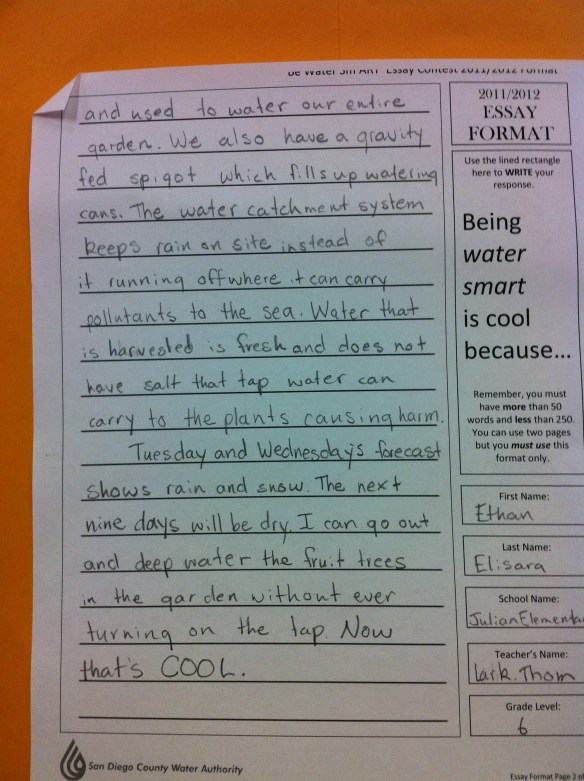 Be Water Sm ART Essay Contest 2011/2012 Format
and used to water our entire
garden. We also have a gravity
fed spigot which fills up watering
cans. The water catchment system
keeps rain on site instead of
it running off where it can carry
pollutants to the sea. Water that
is harvested is fresh and does not
have salt that tap water can
carry to the plants causing harm.
Tuesday and Wednesday's forecast
shows rain and snow. The next
nine days will be dry. I can go out
and deep water the fruit trees
in the garden without ever
turning on the tap. Now
that's COOL.
2011/2012
ESSAY
FORMAT
Use the lined rectangle
here to WRITE your
response.
Being
water
smart
is cool
because...
Remember, you must
have more than 50
words and less than 250.
You can use two pages
but you must use this
format only.
First Name:
Ethan
Last Name:
Elisara
School Name:
Julian Elementa
Teacher's Name:
Lark. Thom
Grade Level:
6
San Diego County Water Authority
Essay Format Page 2 of